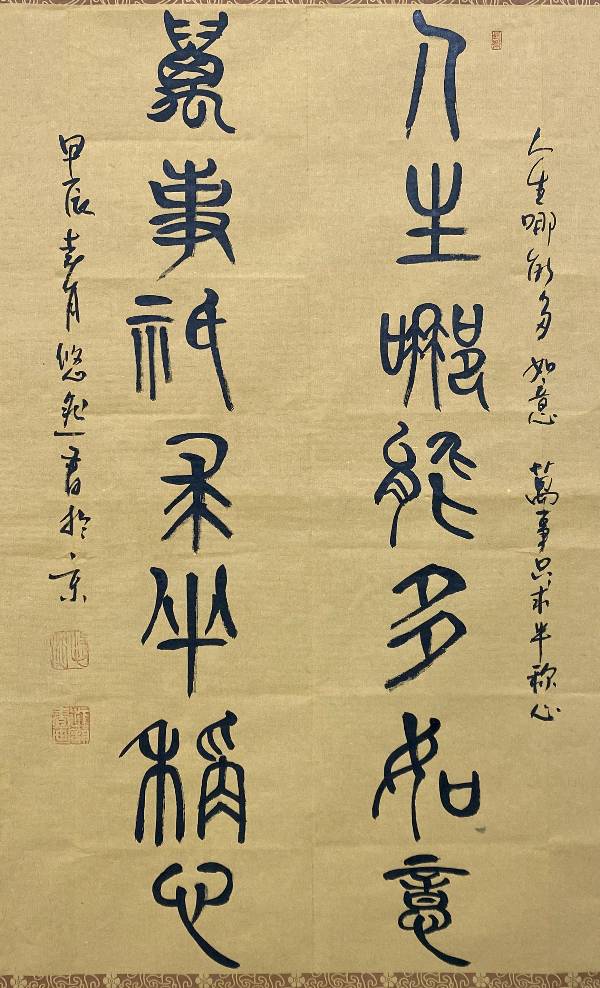 人生哪能多如意 萬事只求半称心
人生哪能多如意
萬事祇求半稱心
甲辰春月悠然書於京